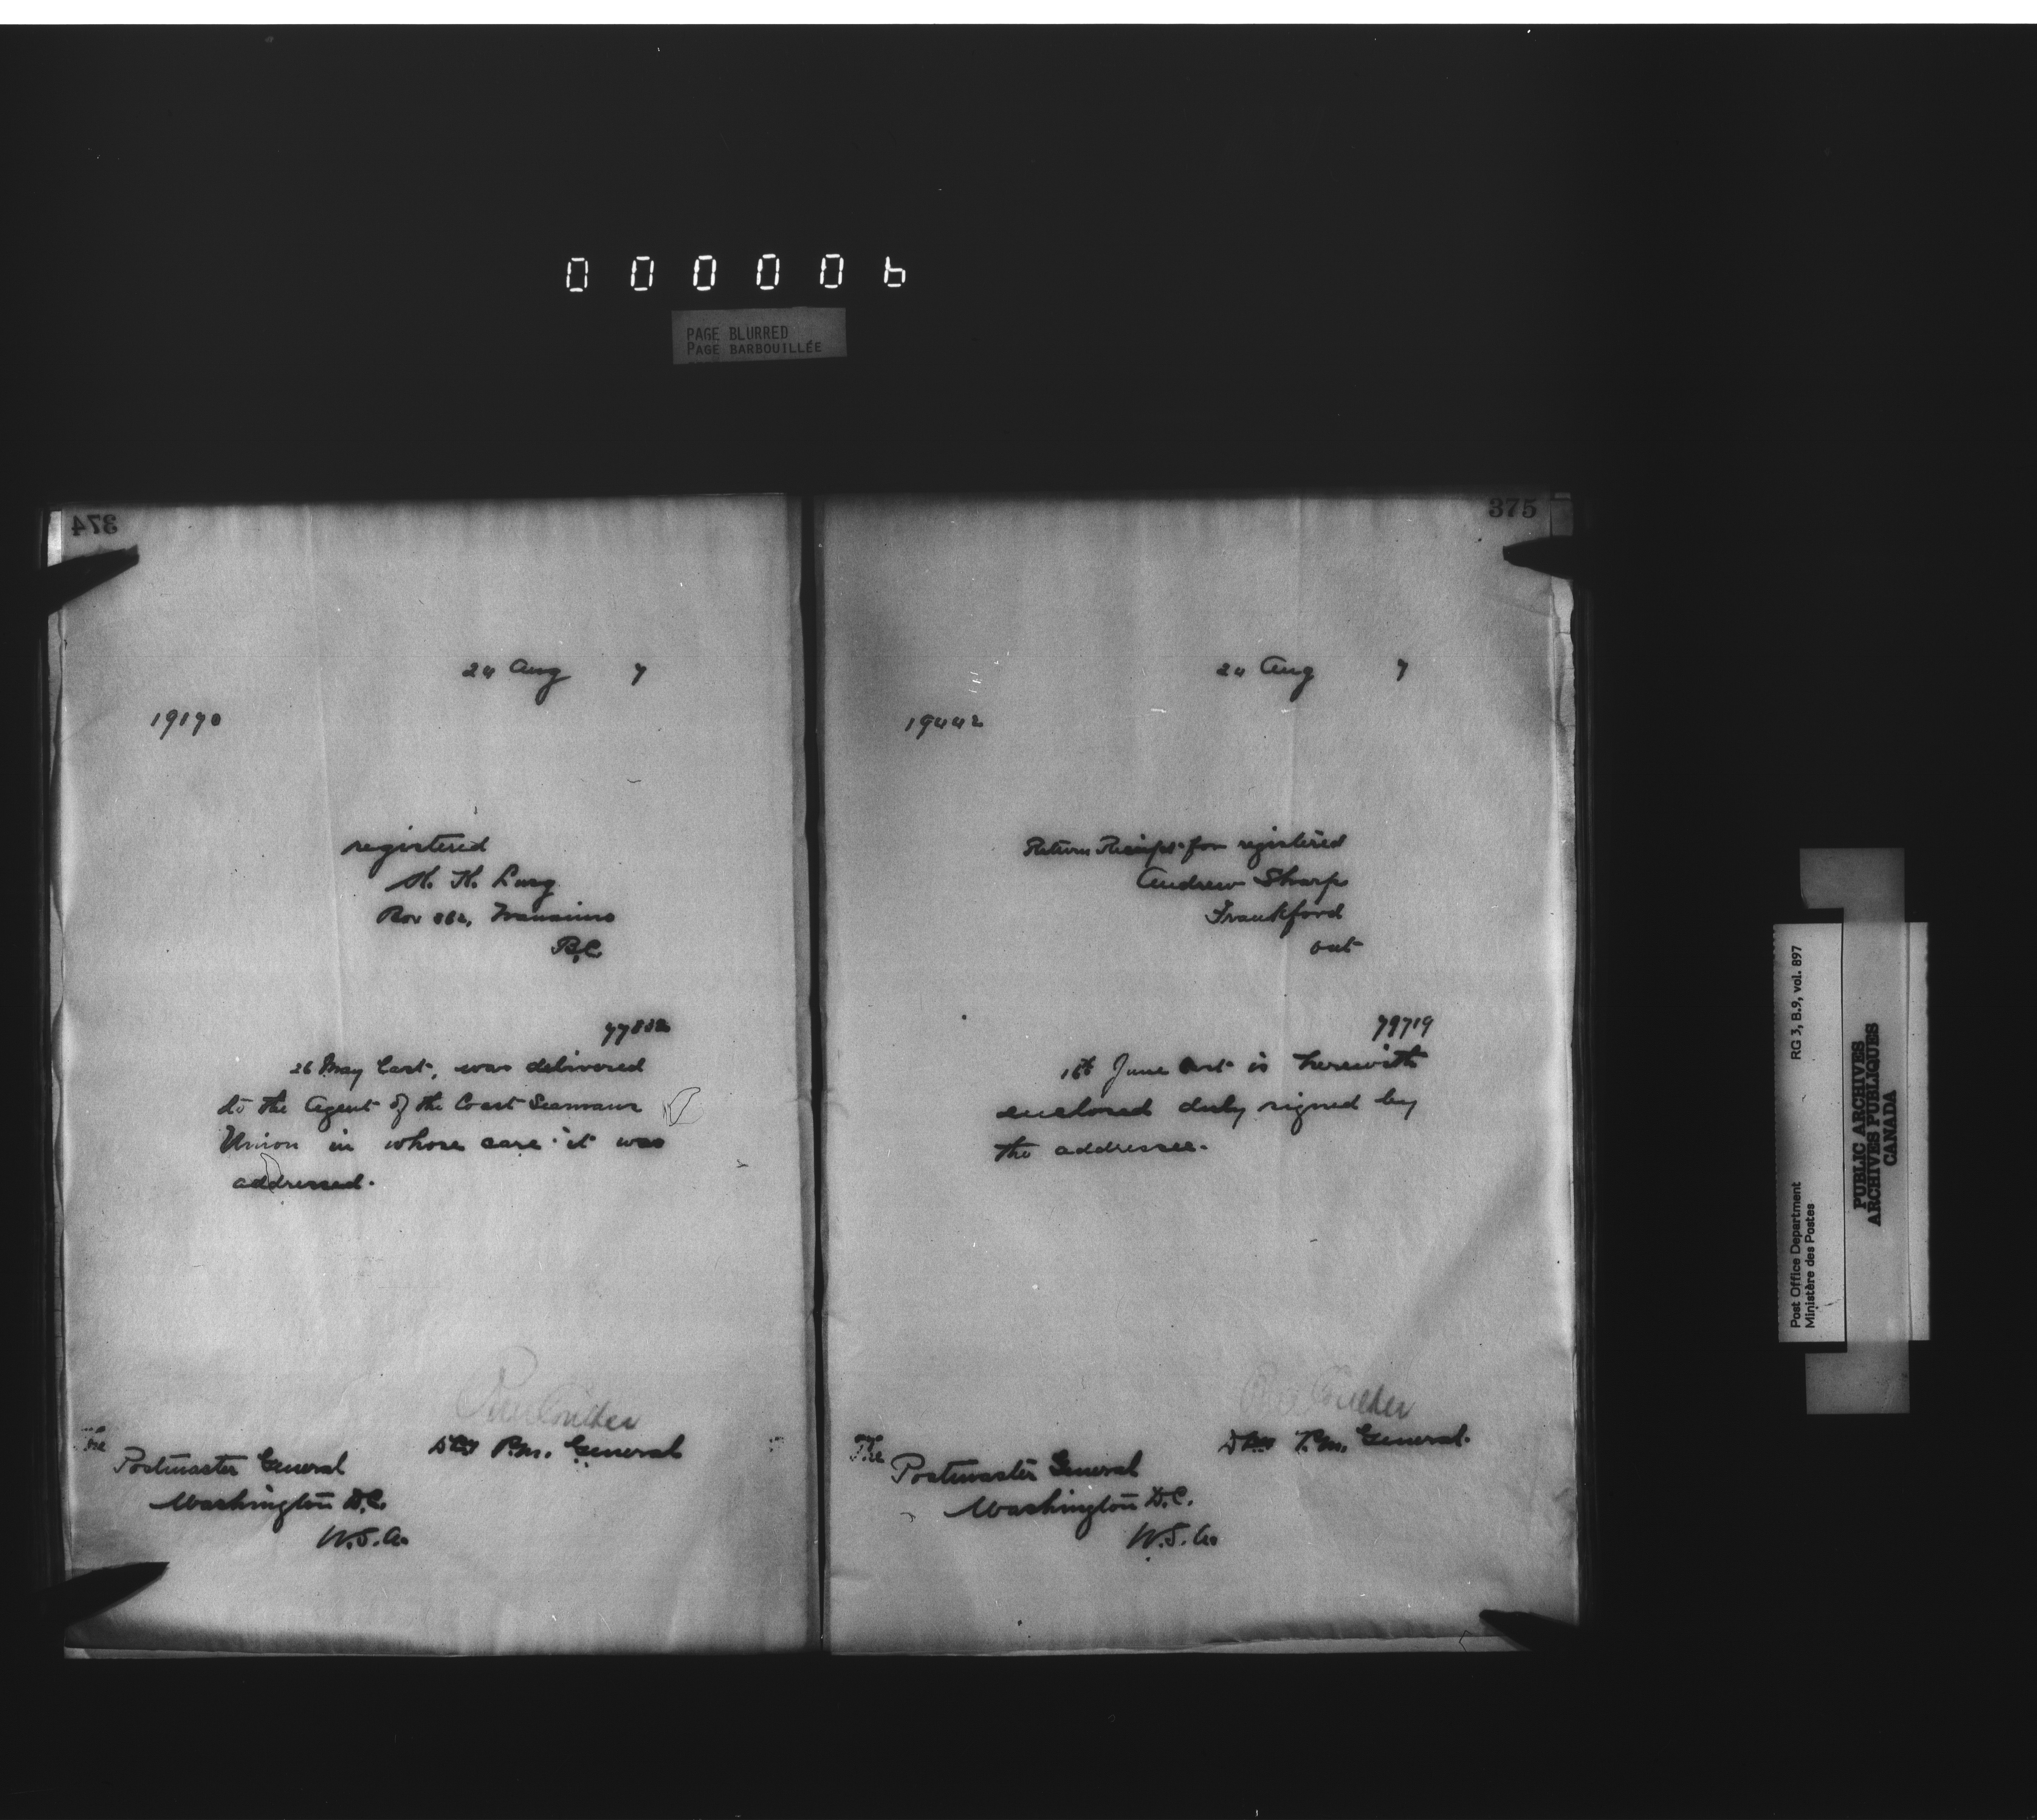 000006
PAGE BLURRED
PAGE BARBOUILLÉE
374
24 Aug 7
19170
registered
Box 862, Nanaimo
B.C.
26 May last, was delivered
to the Agent of the Coast Seamans
Union in whose care it was
addressed.
Coulter
Dty P.M. General
The
Postmaster General
Washington D.C.
U.S.A.
375
24 Aug 7
19442
Return Receipt for registered
Andrew Sharp
Frankford
Ont
79719
June last is herewith
enclosed duly signed by
the addressee.
Coulter
Dty P.M. General.
The
Postmaster General
Washington D.C.
U.S.A.
Post Office Department RG 3, B.9, vol. 897
Ministère des Postes
PUBLIC ARCHIVES
ARCHIVES PUBLIQUES
CANADA